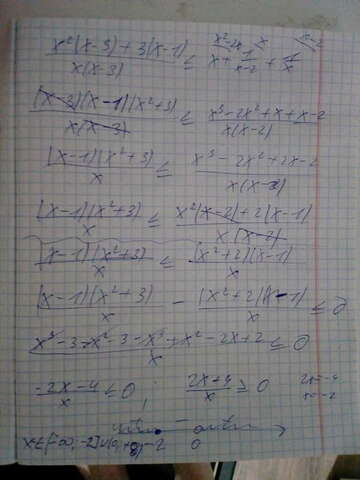 x²(x-3)+3(x-1) / x(x-3) ≤ x + 1/(x-2) + 1/x
(x-3)(x-1)(x²+3) / x(x-3) ≤ x³-2x²+x+x-2 / x(x-2)
(x-1)(x²+3) / x ≤ x³-2x²+2x-2 / x(x-2)
(x-1)(x²+3) / x ≤ x²(x-2)+2(x-1) / x(x-2)
(x-1)(x²+3) / x ≤ (x²+2)(x-1) / x
(x-1)(x²+3) / x - (x²+2)(x-1) / x ≤ 0
x³-3-x²-3-x³+x²-2x+2 / x ≤ 0
-2x-4 / x ≤ 0 ; 2x+4 / x ≤ 0 2x=-4
x=-2
-2 0
x∈(-∞;-2]∪(0;+∞)